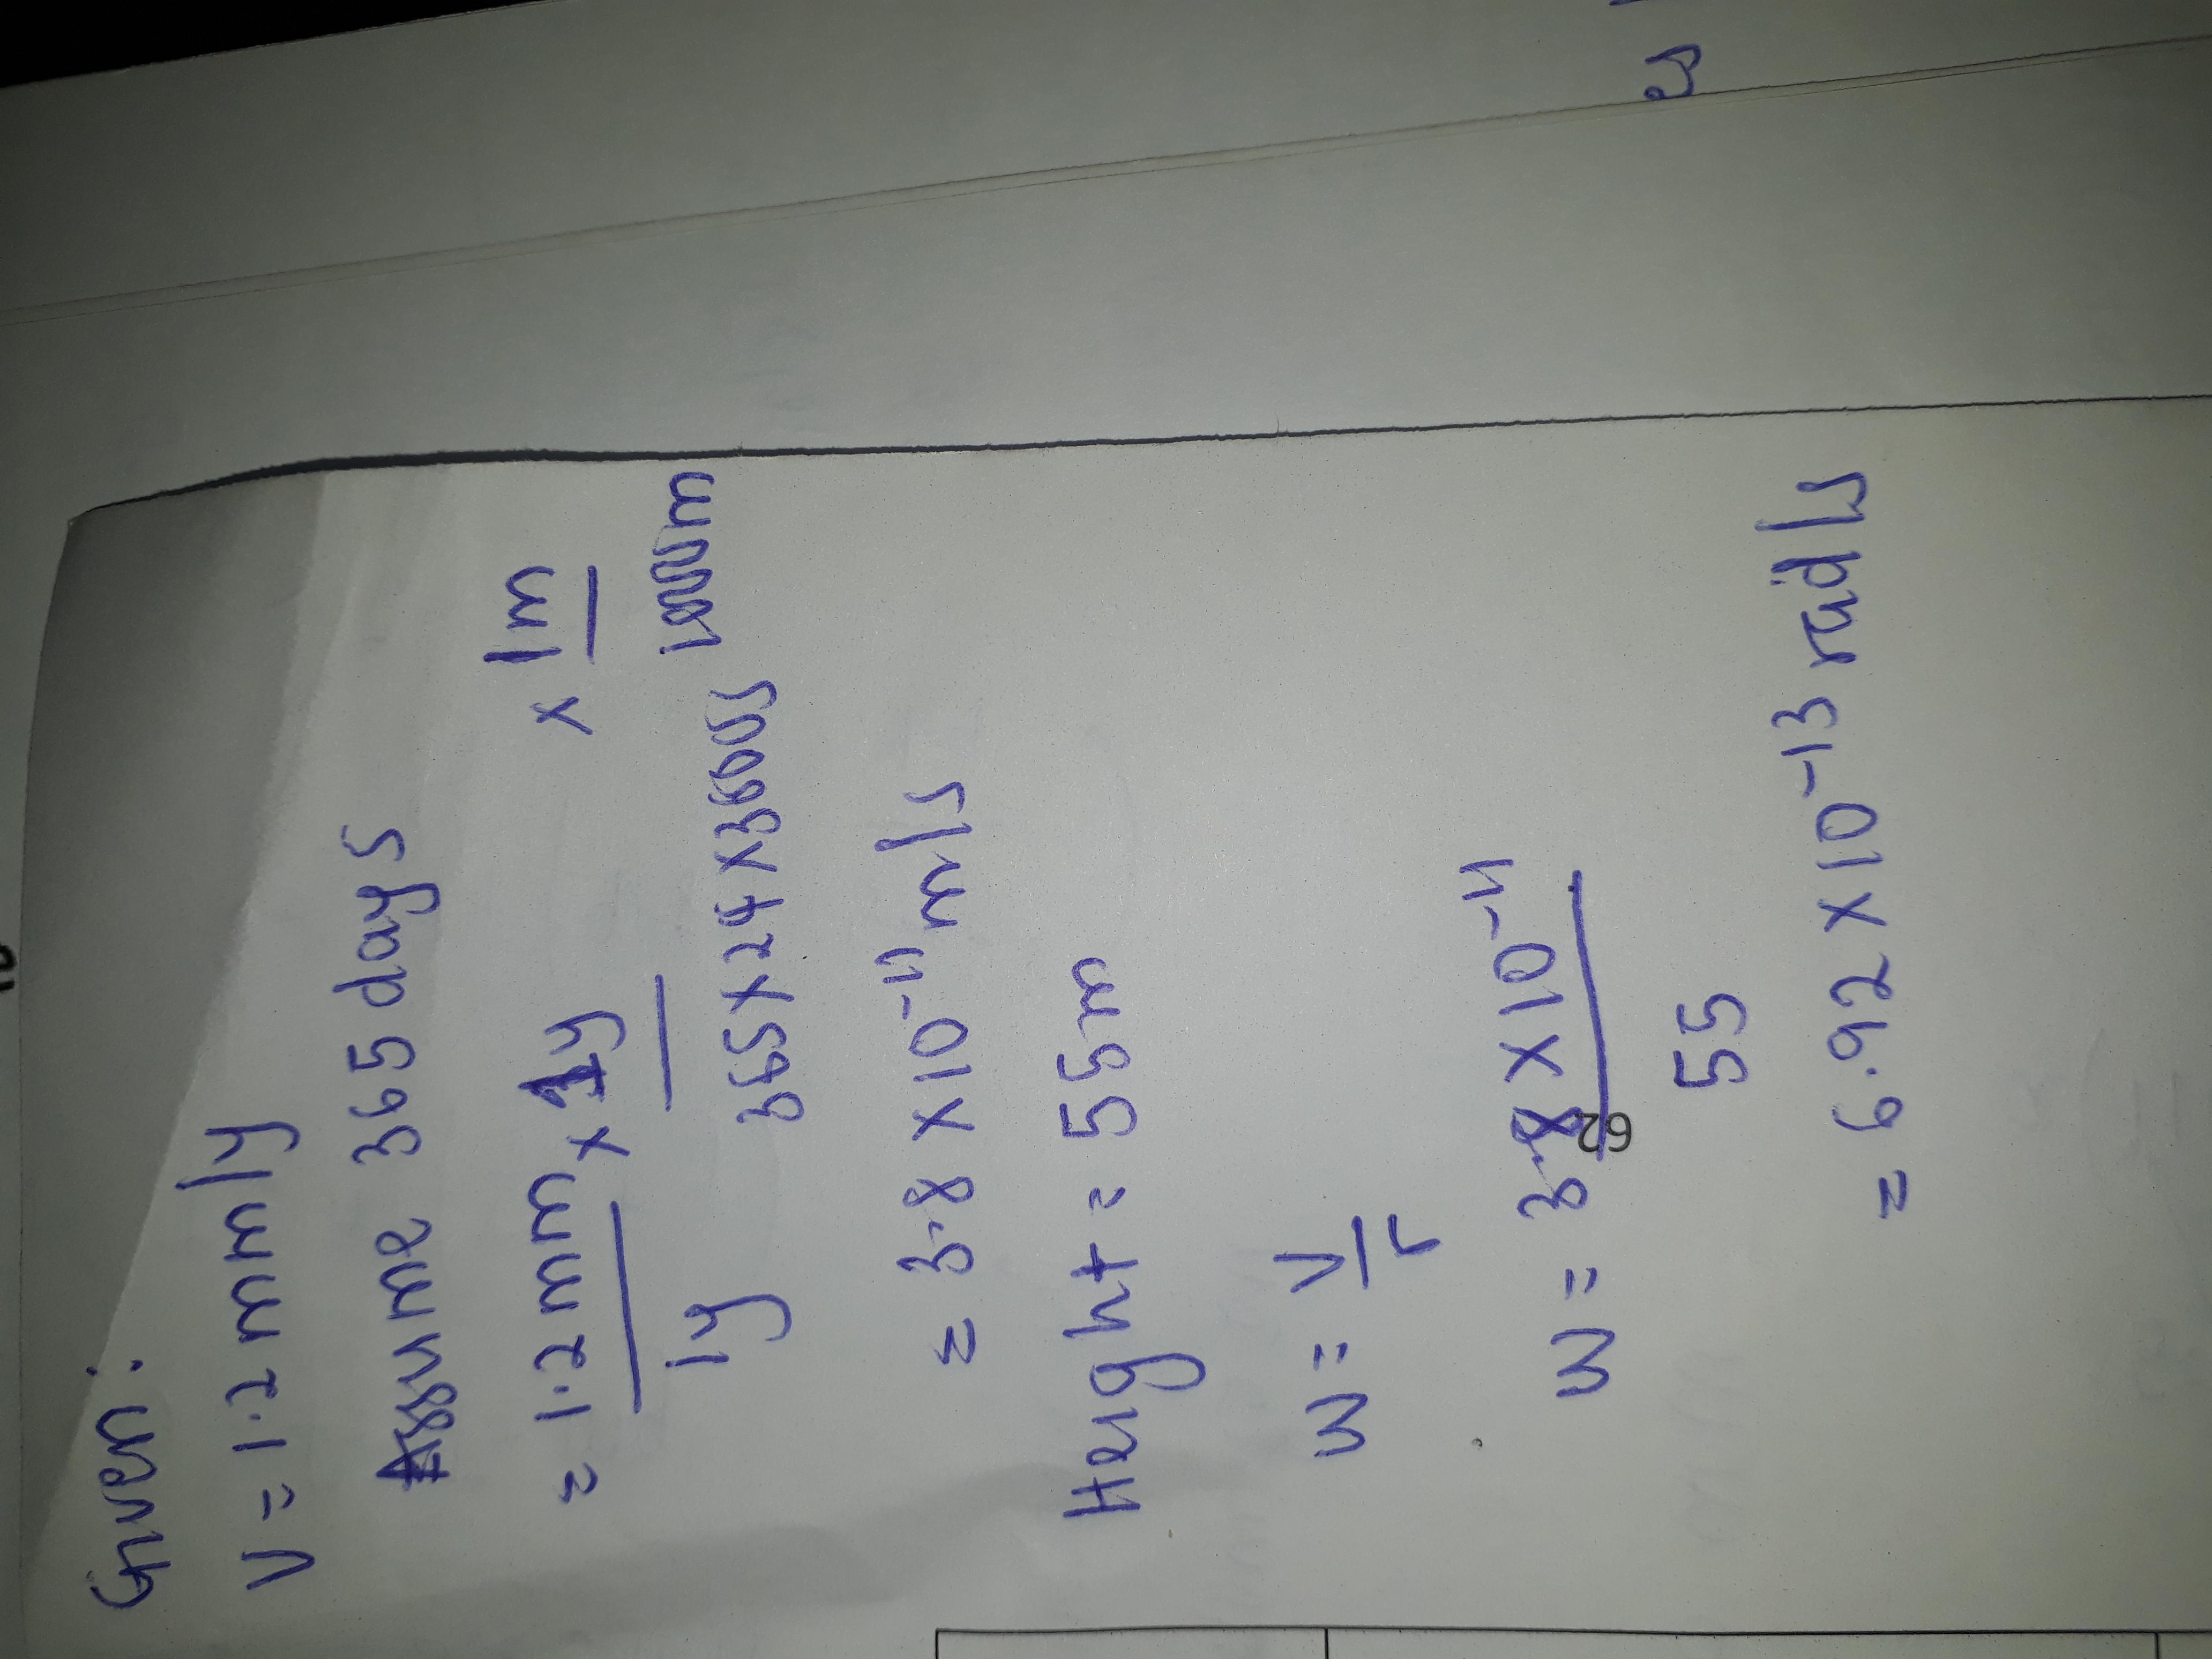 Given:
V = 1.2 mm/y
Assume 365 days
= 1.2 mm/1y x 1y/365 x 24 x 3600s x 1m/1000m
= 3.8 x 10⁻¹¹ m/s
Height = 55m
w = V/r
w = 3.8 x 10⁻¹¹/55
= 6.92 x 10⁻¹³ rad/s
62